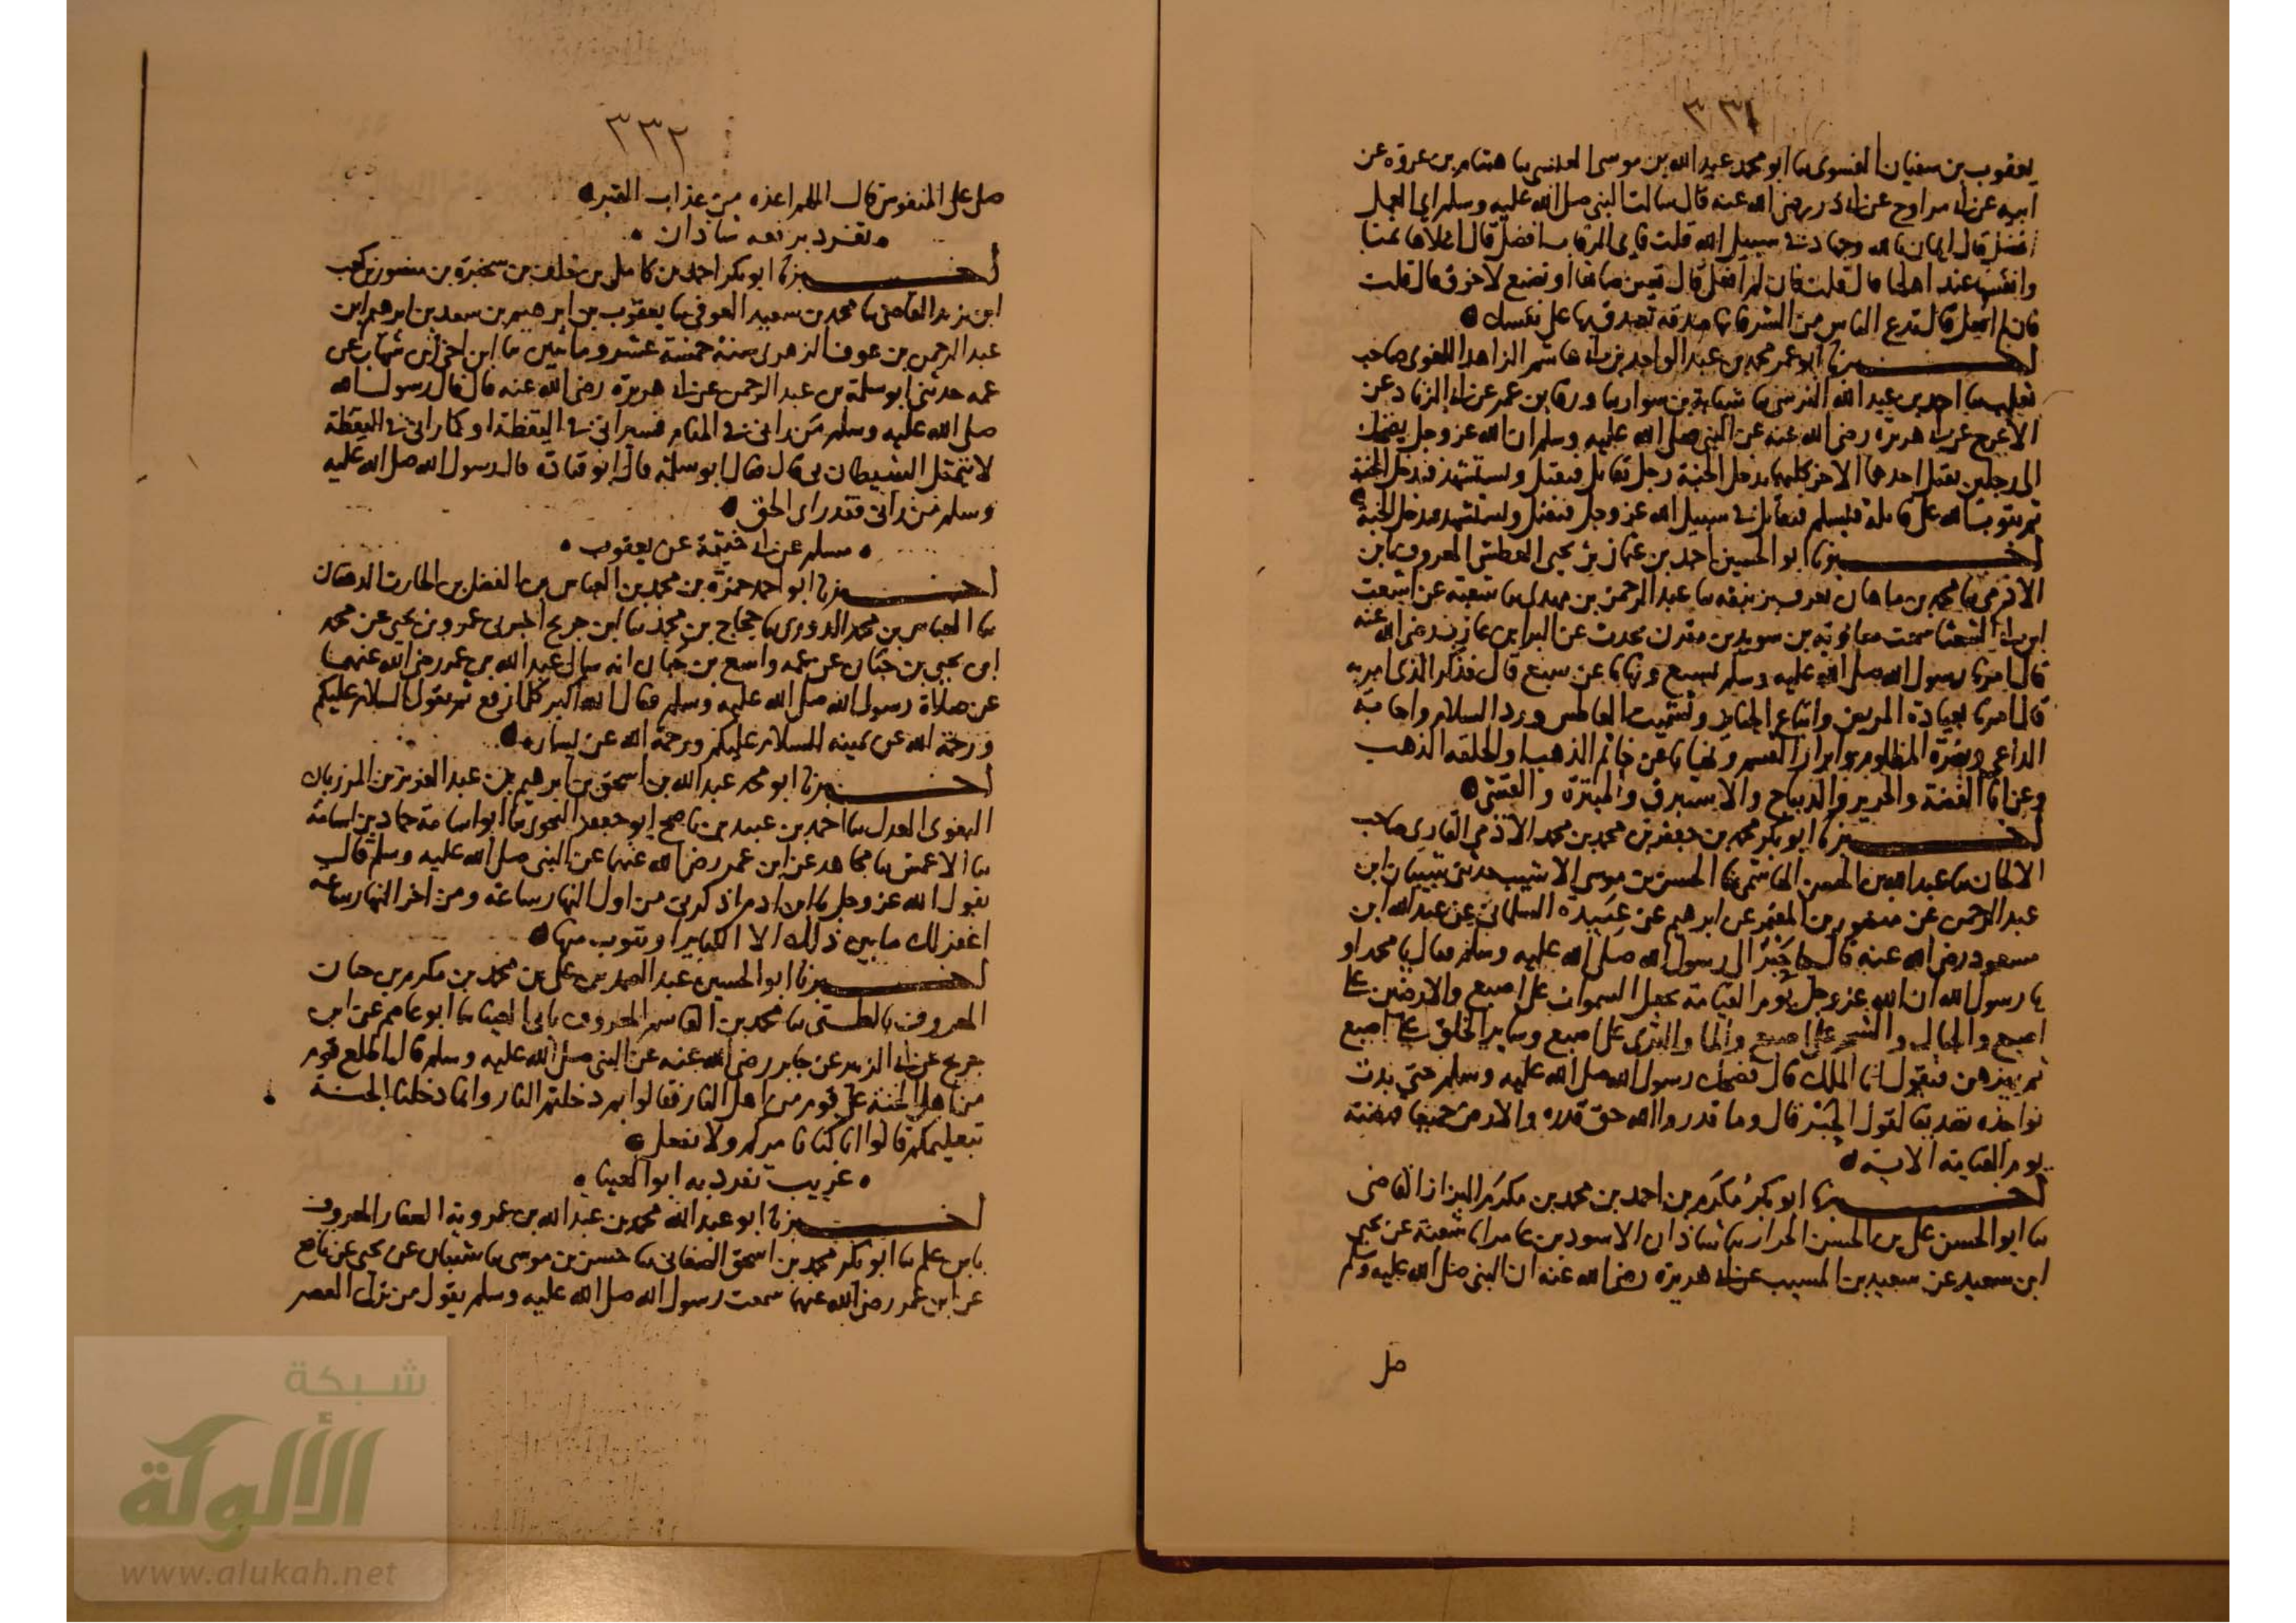 ٣٣١
يعقوب بن سفيان الفسوى نا ابو محمد عبيد الله بن موسى العبسى نا هشام بن عروة عن
ابيه عن ابى مراوح عن ابى ذر رضى الله عنه قال سالت النبى صلى الله عليه وسلم اى العمل
افضل قال ايمان بالله وجهاد فى سبيل الله قلت فاى الرقاب افضل قال اغلاها ثمنا
وانفسها عند اهلها قال قلت فان لم افعل قال تعين صانعا او تصنع لاخرق قال قلت
فان لم افعل قال تدع الناس من الشر فانها صدقة تصدق بها على نفسك
اخبرنا ابو عمر محمد بن عبد الواحد بن ابى هاشم الزاهد اللغوى صاحب
ثعلب نا احمد بن عبيد الله النرسى نا شبابة بن سوار نا ورقا بن عمر عن ابى الزناد عن
الاعرج عن ابى هريرة رضى الله عنه عن النبى صلى الله عليه وسلم ان الله عز وجل يضحك
الى رجلين يقتل احدهما الاخر كلاهما يدخل الجنة رجل يقاتل فيقتل ويستشهد فيدخل الجنة
ثم يتوب الله على قاتله فيسلم فيقاتل فى سبيل الله عز وجل فيقتل ويستشهد فيدخل الجنة
اخبرنا ابو الحسين احمد بن عثمان بن يحيى العطشى المعروف بابن
الادمى نا محمد بن ماهان يعرف بزنبقه نا عبد الرحمن بن مهدى نا شعبة عن اشعث
ابن ابى الشعثا سمعت معاوية بن سويد بن مقرن يحدث عن البرا بن عازب رضى الله عنه
قال امرنا رسول الله صلى الله عليه وسلم بسبع ونهانا عن سبع قال فذكر الذى امر به
قال امرنا بعيادة المريض واتباع الجنايز وتشميت العاطس ورد السلام واجابة
الداعى ونصرة المظلوم وابرار القسم ونهانا عن خاتم الذهب والحلقه الذهب
وعن انا الفضة والحرير والديباج والاستبرق والميثرة والقسى
اخبرنا ابو بكر محمد بن جعفر بن محمد بن محمد الادمى القارى صاحب
الالحان نا عبد الله بن الحسن الهاشمى نا الحسن بن موسى الاشيب حدثنى شيبان ابن
عبد الرحمن عن منصور بن المعتمر عن ابرهيم عن عبيدة السلمانى عن عبد الله ابن
مسعود رضى الله عنه قال جا حبر الى رسول الله صلى الله عليه وسلم فقال يا محمد او
يا رسول الله ان الله عز وجل يوم القيامة يجعل السموات على اصبع والارضين على
اصبع والجبال والشجر على اصبع والما والثرى على اصبع وساير الخلق على اصبع
ثم يهزهن فيقول انا الملك قال فضحك رسول الله صلى الله عليه وسلم حتى بدت
نواجذه تصديقا لقول الحبر قال وما قدروا الله حق قدره والارض جميعا قبضته
يوم القيامة الاية
اخبرنا ابو بكر مكرم بن احمد بن محمد بن مكرم البزاز القاضى
نا ابو الحسن على بن الحسن الخراز نا شاذان الاسود بن عامر انا شعبة عن يحيى
ابن سعيد عن سعيد بن المسيب عن ابى هريرة رضى الله عنه ان النبى صلى الله عليه وسلم
صلى
٣٣٢
صلى على المنفوس قال اللهم اعذه من عذاب القبر
تفرد برفعه شاذان
اخبرنا ابو بكر احمد بن كامل بن خلف بن سخبرة بن منصور بن كعب
ابن يزيد القاضى نا محمد بن سعيد العوفى نا يعقوب بن ابرهيم بن سعد بن ابرهيم ابن
عبد الرحمن بن عوف الزهرى سنة خمسة عشر ومائتين نا ابن اخى ابن شهاب عن
عمه حدثنى ابو سلمة بن عبد الرحمن عن ابى هريرة رضى الله عنه قال قال رسول الله
صلى الله عليه وسلم من رانى فى المنام فسيرانى فى اليقظة او كما رانى فى اليقظة
لا يتمثل الشيطان بى قال فقال ابو سلمة قال ابو قتادة قال رسول الله صلى الله عليه
وسلم من رانى فقد راى الحق
مسلم عن ابى خيثمة عن يعقوب
اخبرنا ابو احمد حمزة بن محمد بن العباس بن الفضل بن الحارث الدهقان
نا العباس بن محمد الدورى نا حجاج بن محمد نا ابن جريج اخبرنى عمرو بن يحيى عن محمد
ابن يحيى بن حبان عن عمه واسع بن حبان انه سال عبد الله بن عمر رضى الله عنهما
عن صلاة رسول الله صلى الله عليه وسلم فقال الله اكبر كلما رفع ثم يقول السلام عليكم
ورحمة الله عن يمينه السلام عليكم ورحمة الله عن يساره
اخبرنا ابو محمد عبد الله بن اسحق بن ابرهيم بن عبد العزيز بن المرزبان
البغوى المعدل نا احمد بن عبيد بن ناصح ابو جعفر النحوى نا ابو اسامة حماد بن اسامة
نا الاعمش نا مجاهد عن ابن عمر رضى الله عنهما عن النبى صلى الله عليه وسلم قال
يقول الله عز وجل يا ابن ادم اذكرنى من اول النهار ساعة ومن اخر النهار ساعة
اغفر لك ما بين ذلك الا الكباير او تتوب منها
اخبرنا ابو الحسين عبد الصمد بن على بن محمد بن مكرم بن حسان
المعروف بالطستى نا محمد بن القاسم المعروف بابى العينا نا ابو عاصم عن ابن
جريج عن ابى الزبير عن جابر رضى الله عنه عن النبى صلى الله عليه وسلم قال اطلع قوم
من اهل الجنة على قوم من اهل النار فقالوا بم دخلتم النار وانما دخلنا الجنة
بتعليمكم قالوا انا كنا نامركم ولا نفعل
غريب تفرد به ابو العينا
اخبرنا ابو عبد الله محمد بن عبد الله بن عمروية الصفار المعروف
بابن علم نا ابو بكر محمد بن اسحق الصغانى نا حسن بن موسى نا شيبان عن يحيى عن نافع
عن ابن عمر رضى الله عنهما سمعت رسول الله صلى الله عليه وسلم يقول من ترك العصر
شبكة
الألوكة
www.alukah.net